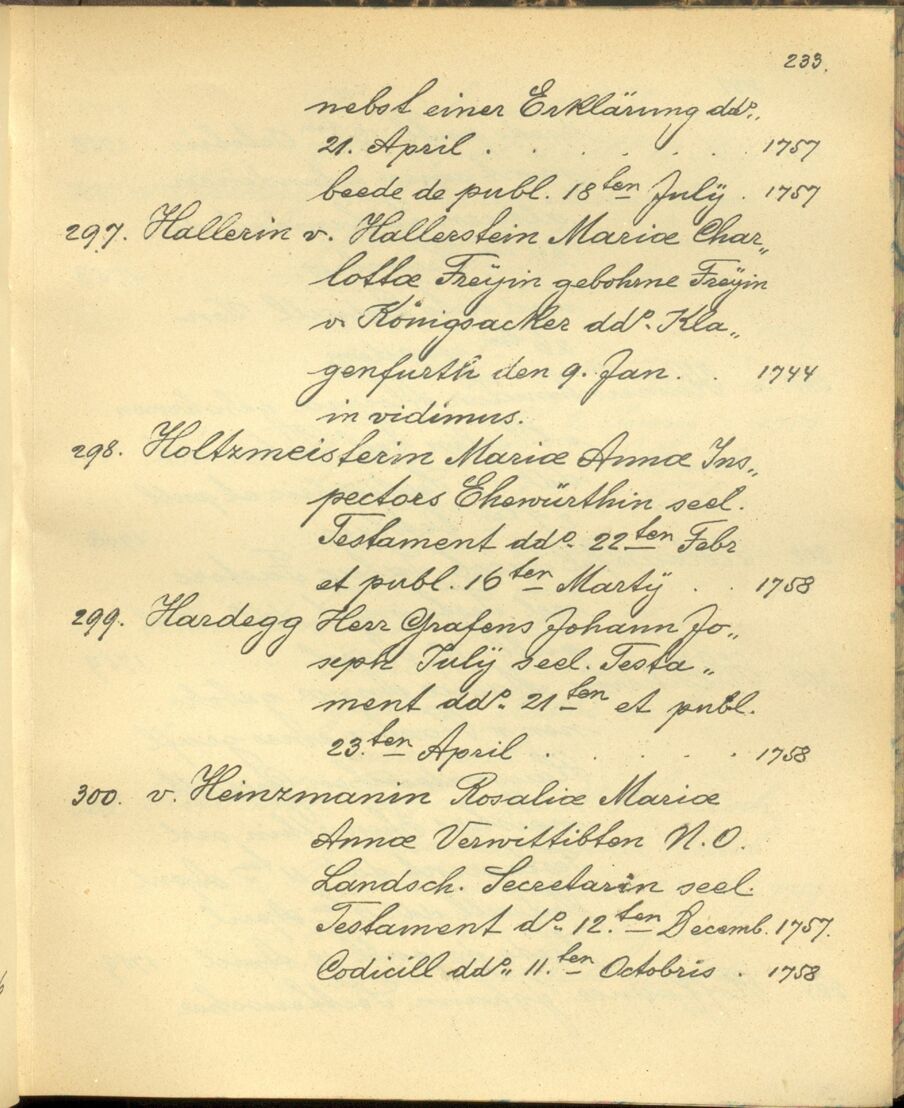 233.
nebst einer Erklärung ddº.,
21. April . . . . . . 1757
beede de publ. 18ten Julÿ . 1757
297. Hallerin v. Hallerstein Mariæ Char„
lottæ Freÿin gebohrne Freÿin
v. Königsacker ddº. Kla„
genfurth den 9. Jan. . 1744
in vidimus.
298. Holtzmeisterin Mariæ Annæ Ins„
pectors Ehewürthin seel.
Testament ddº. 22ten Febr
et publ. 16ten Martÿ . . 1758
299. Hardegg Herr Grafens Johann Jo„
seph Julÿ seel. Testa„
ment ddº. 21ten et publ.
23ten April . . . . . 1758
300. v. Heinzmanin Rosaliæ Mariæ
Annæ Verwittibten N.O.
Landsch. Secretarin seel.
Testament dº. 12.ten Decemb. 1757.
Codicill ddº. 11.ten Octobris . 1758